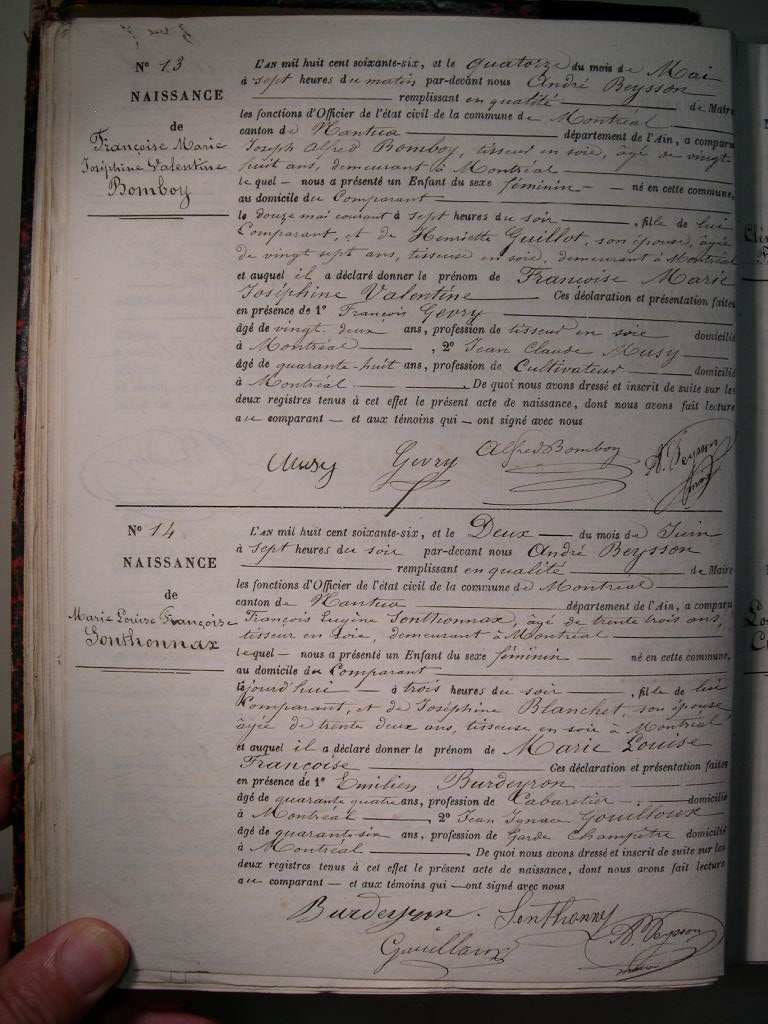 N° 13
NAISSANCE
de
Françoise Marie
Joséphine Valentine
Bomboy
L'AN mil huit cent soixante-six, et le quatorze du mois de Mai
à sept heures du matin par-devant nous André Beysson
remplissant en qualité de Maire
les fonctions d'Officier de l'état civil de la commune de Montréal
canton de Nantua département de l'Ain, a comparu
Joseph Alfred Bomboy, tisseur en soie, âgé de vingt-
huit ans, demeurant à Montréal
lequel — nous a présenté un Enfant du sexe féminin — né en cette commune,
au domicile du Comparant
le douze mai courant à sept heures du soir, fille de lui
Comparant, et de Henriette Guillot, son épouse, âgée
de vingt sept ans, tisseuse en soie, demeurant à Montréal
et auquel il a déclaré donner le prénom de Françoise Marie
Joséphine Valentine Ces déclaration et présentation faites
en présence de 1° François Gevry
âgé de vingt-deux ans, profession de tisseur en soie domicilié
à Montréal, 2° Jean Claude Musy
âgé de quarante-huit ans, profession de Cultivateur domicilié
à Montréal. De quoi nous avons dressé et inscrit de suite sur les
deux registres tenus à cet effet le présent acte de naissance, dont nous avons fait lecture
au comparant — et aux témoins qui — ont signé avec nous
Musy Gevry Alfred Bomboy A. Beysson
N° 14
NAISSANCE
de
Marie Louise Françoise
Sonthonnax
L'AN mil huit cent soixante-six, et le Deux du mois de Juin
à sept heures du soir par-devant nous André Beysson
remplissant en qualité de Maire
les fonctions d'Officier de l'état civil de la commune de Montréal
canton de Nantua département de l'Ain, a comparu
François Eugène Sonthonnax, âgé de trente trois ans,
tisseur en soie, demeurant à Montréal
lequel — nous a présenté un Enfant du sexe féminin — né en cette commune,
au domicile du Comparant
cejourd'hui — à trois heures du soir, fille de lui
Comparant, et de Joséphine Blanchet, son épouse
âgée de trente deux ans, tisseuse en soie à Montréal
et auquel il a déclaré donner le prénom de Marie Louise
Françoise Ces déclaration et présentation faites
en présence de 1° Emilien Burdeyron
âgé de quarante quatre ans, profession de Cabaretier domicilié
à Montréal, 2° Jean Ignace Gouilloux
âgé de quarante-six ans, profession de Garde Champêtre domicilié
à Montréal. De quoi nous avons dressé et inscrit de suite sur les
deux registres tenus à cet effet le présent acte de naissance, dont nous avons fait lecture
au comparant — et aux témoins qui — ont signé avec nous
Burdeyron Sonthonnax A. Beysson
Gouilloux